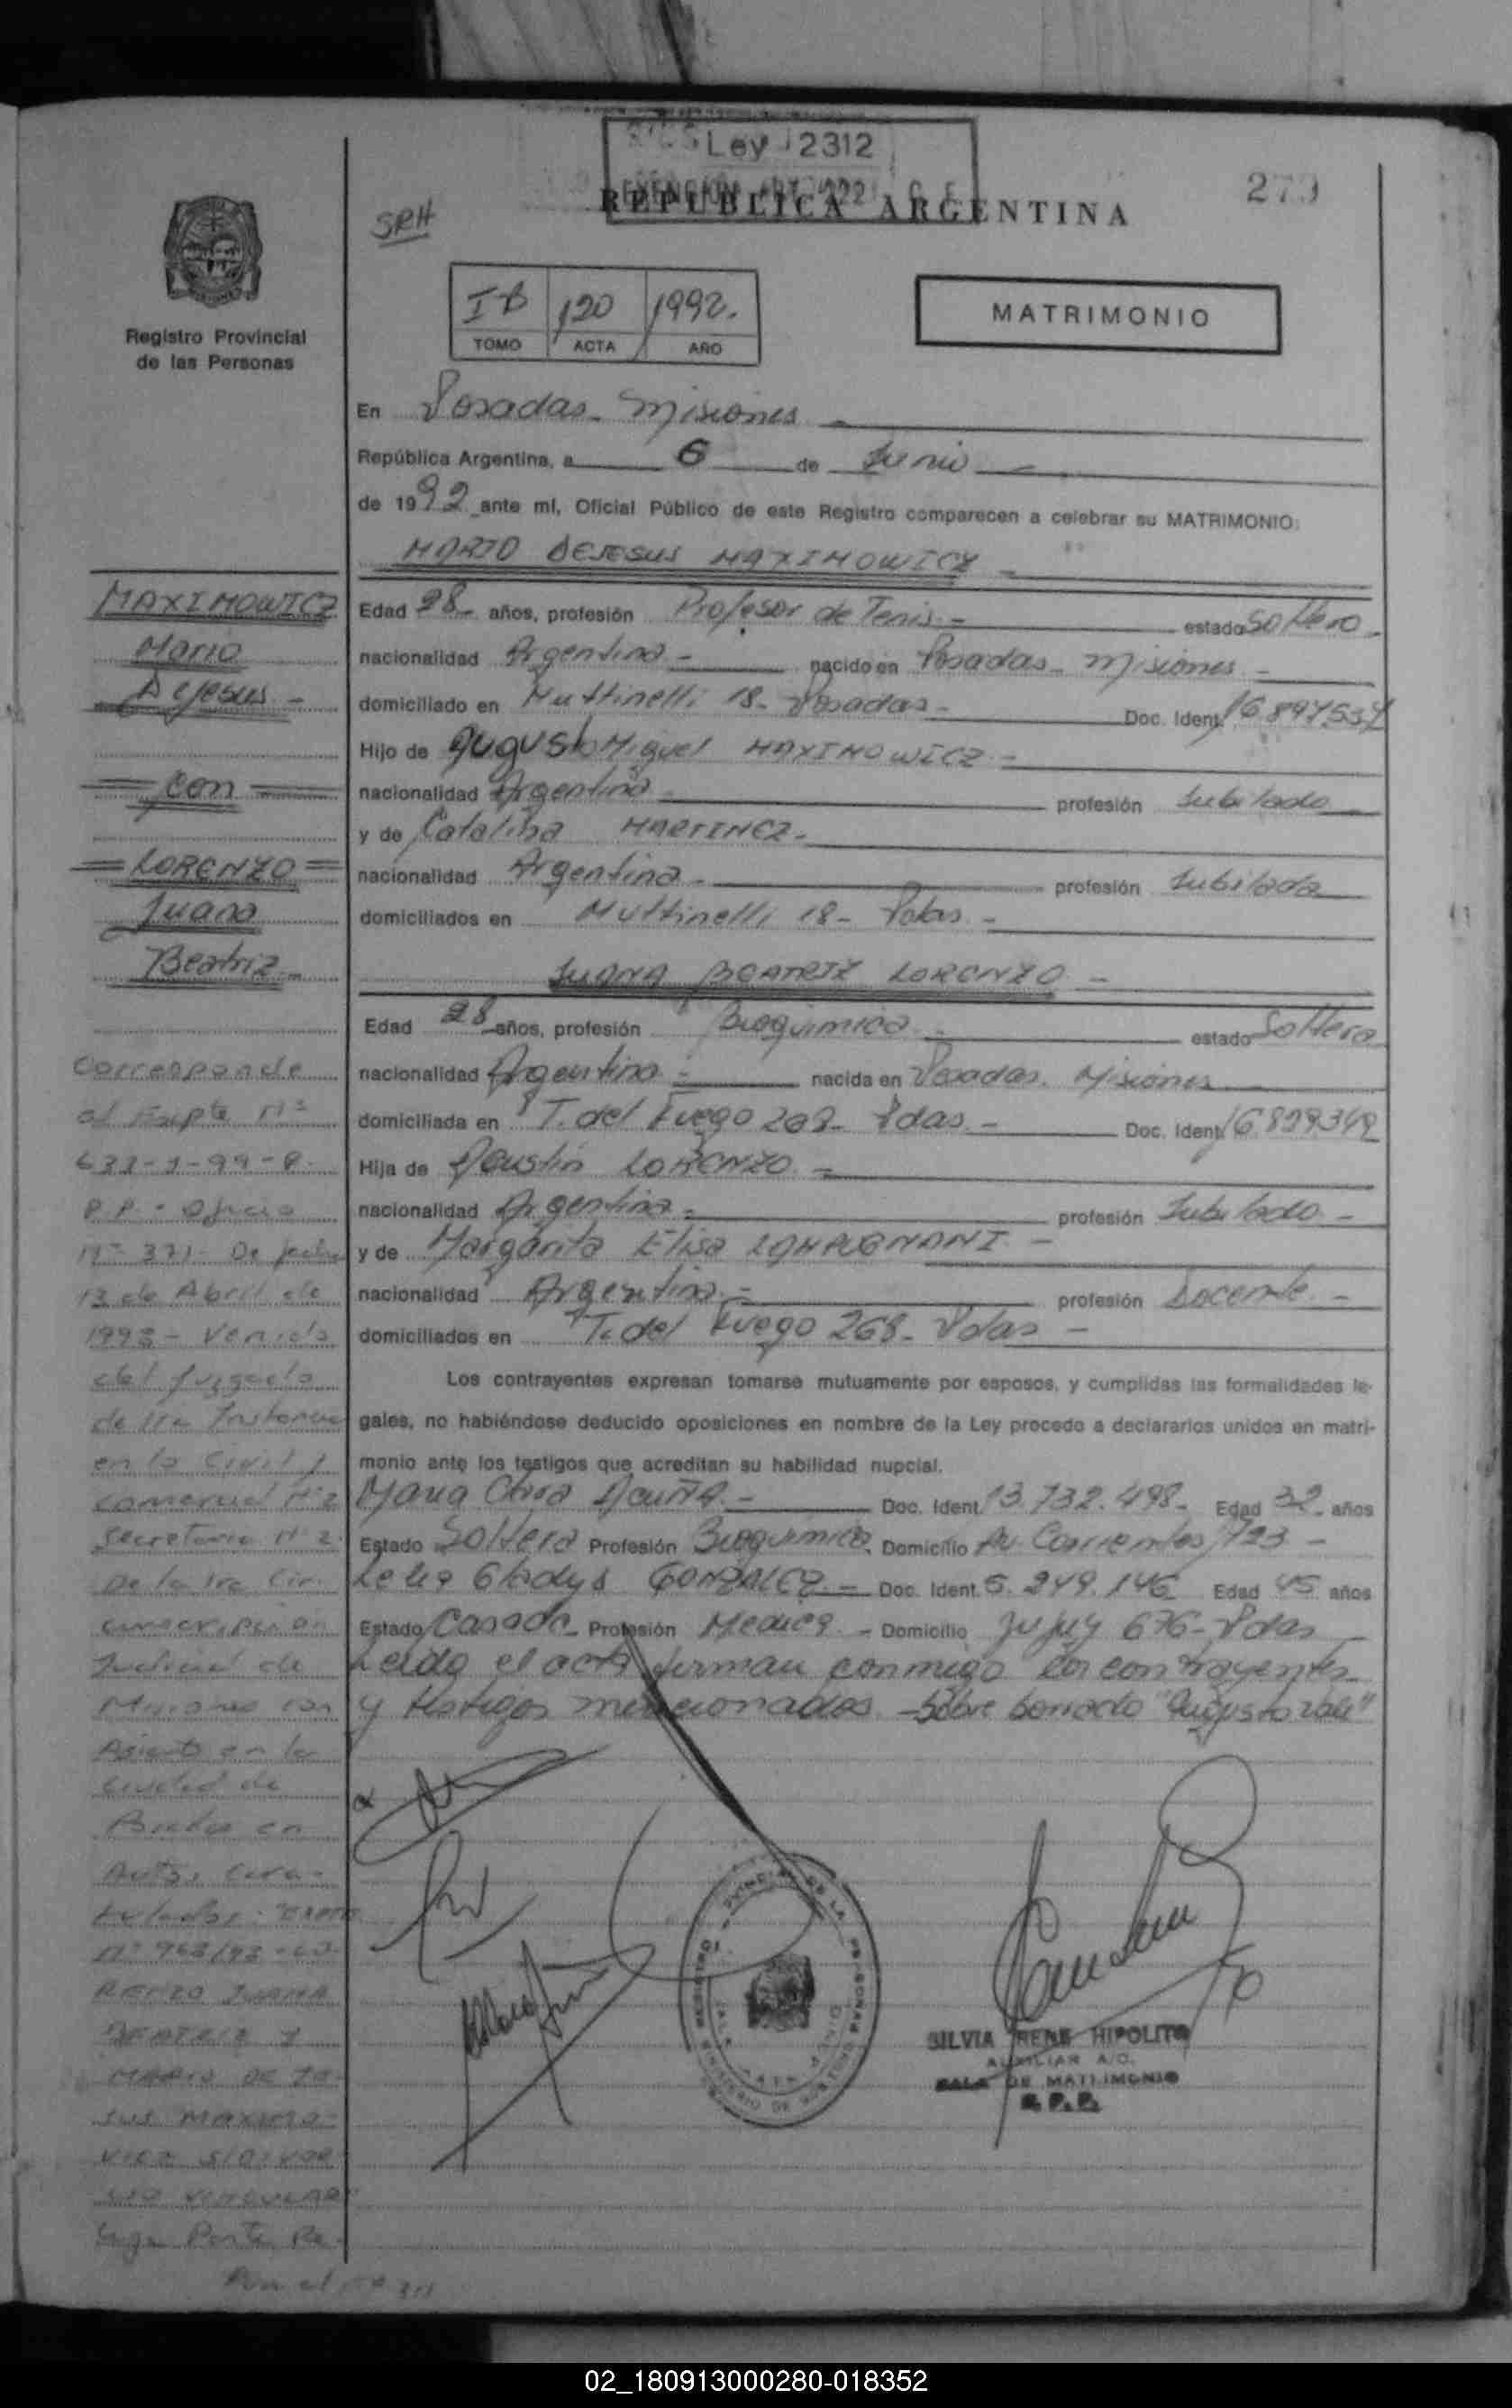 Ley 2312
REPUBLICA ARGENTINA
SRH
Registro Provincial
de las Personas
IB 120 1992.
TOMO ACTA AÑO
MATRIMONIO
En Posadas - Misiones -
República Argentina, a 6 de Junio
de 1992 ante mí, Oficial Público de este Registro comparecen a celebrar su MATRIMONIO:
MARIO DEJESUS MAXIMOWICZ -
MAXIMOWICZ
Mario
Dejesus -
con
LORENZO
Juana
Beatriz
Edad 28 años, profesión Profesor de Tenis - estado Soltero
nacionalidad Argentina - nacido en Posadas - Misiones -
domiciliado en Muttinelli 18 - Posadas - Doc. Ident.
Hijo de Augusto Miguel MAXIMOWICZ -
nacionalidad Argentina profesión Jubilado
y de Catalina MARTINEZ -
nacionalidad Argentina - profesión Jubilada
domiciliados en Muttinelli 18 - Pdas -
JUANA BEATRIZ LORENZO -
Edad 28 años, profesión Bioquimica estado Soltera
nacionalidad Argentina - nacida en Posadas. Misiones
domiciliada en T. del Fuego 268 - Pdas - Doc. Ident.
Hija de Agustín LORENZO -
nacionalidad Argentina - profesión Jubilado -
y de Margarita Elisa -
nacionalidad Argentina - profesión Docente -
domiciliados en T. del Fuego 268 - Pdas -
Los contrayentes expresan tomarse mutuamente por esposos, y cumplidas las formalidades le-
gales, no habiéndose deducido oposiciones en nombre de la Ley procedo a declararlos unidos en matri-
monio ante los testigos que acreditan su habilidad nupcial.
Maria Clara Acuña - Doc. Ident. 13.732.498 - Edad 32 años
Estado Soltera Profesión Bioquimica Domicilio Av. Corrientes 1723 -
Gladys GONZALEZ - Doc. Ident. 5.249.146 Edad 45 años
Estado Casada Profesión Medica - Domicilio Jujuy 676 - Pdas
Leida el acta firman conmigo los contrayentes
y testigos mencionados - Sobre borrado "Augusto vale"
Corresponde
al Expte Nº
Oficio
Nº 371 - De fecha
13 de Abril de
1993 - Venido
del Juzgado
de 1ra Instancia
en lo Civil y
Comercial Nº 2
Secretaria Nº 2
De la 1ra Cir-
cunscripción
Judicial de
Misiones con
Asiento en la
ciudad de
Posadas en
Autos Cara-
tulados: Expte
RENZO JUANA
BEATRIZ Y
MARIO DE JE-
SUS MAXIMO-
VICZ S/DIVOR
CIO VINCULAR
SILVIA IRENE HIPOLITO
AUXILIAR A/C.
SALA DE MATRIMONIO
02_180913000280-018352